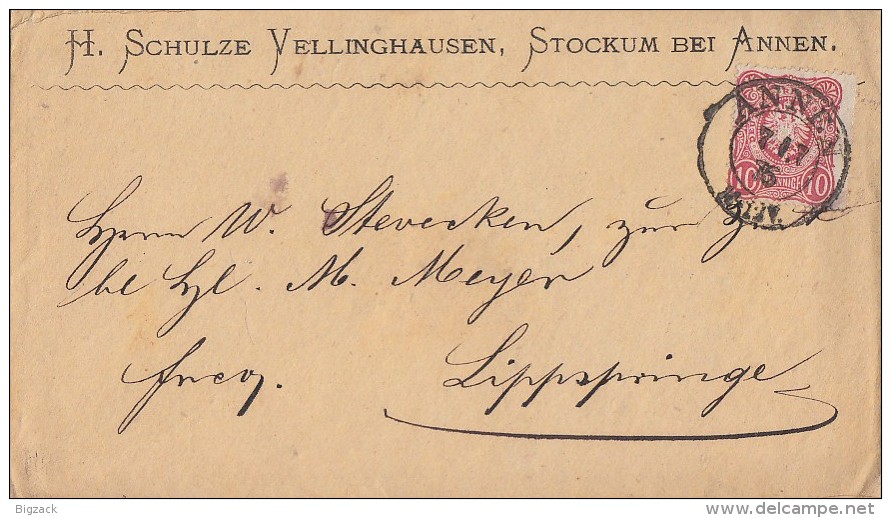 H. SCHULZE VELLINGHAUSEN, STOCKUM BEI ANNEN.
ANNEN
10 PFENNIGE 10
Herrn W. Stevecken, zur Z
bei M. Meyer
Lippspringe
Bigzack
delcampe.net